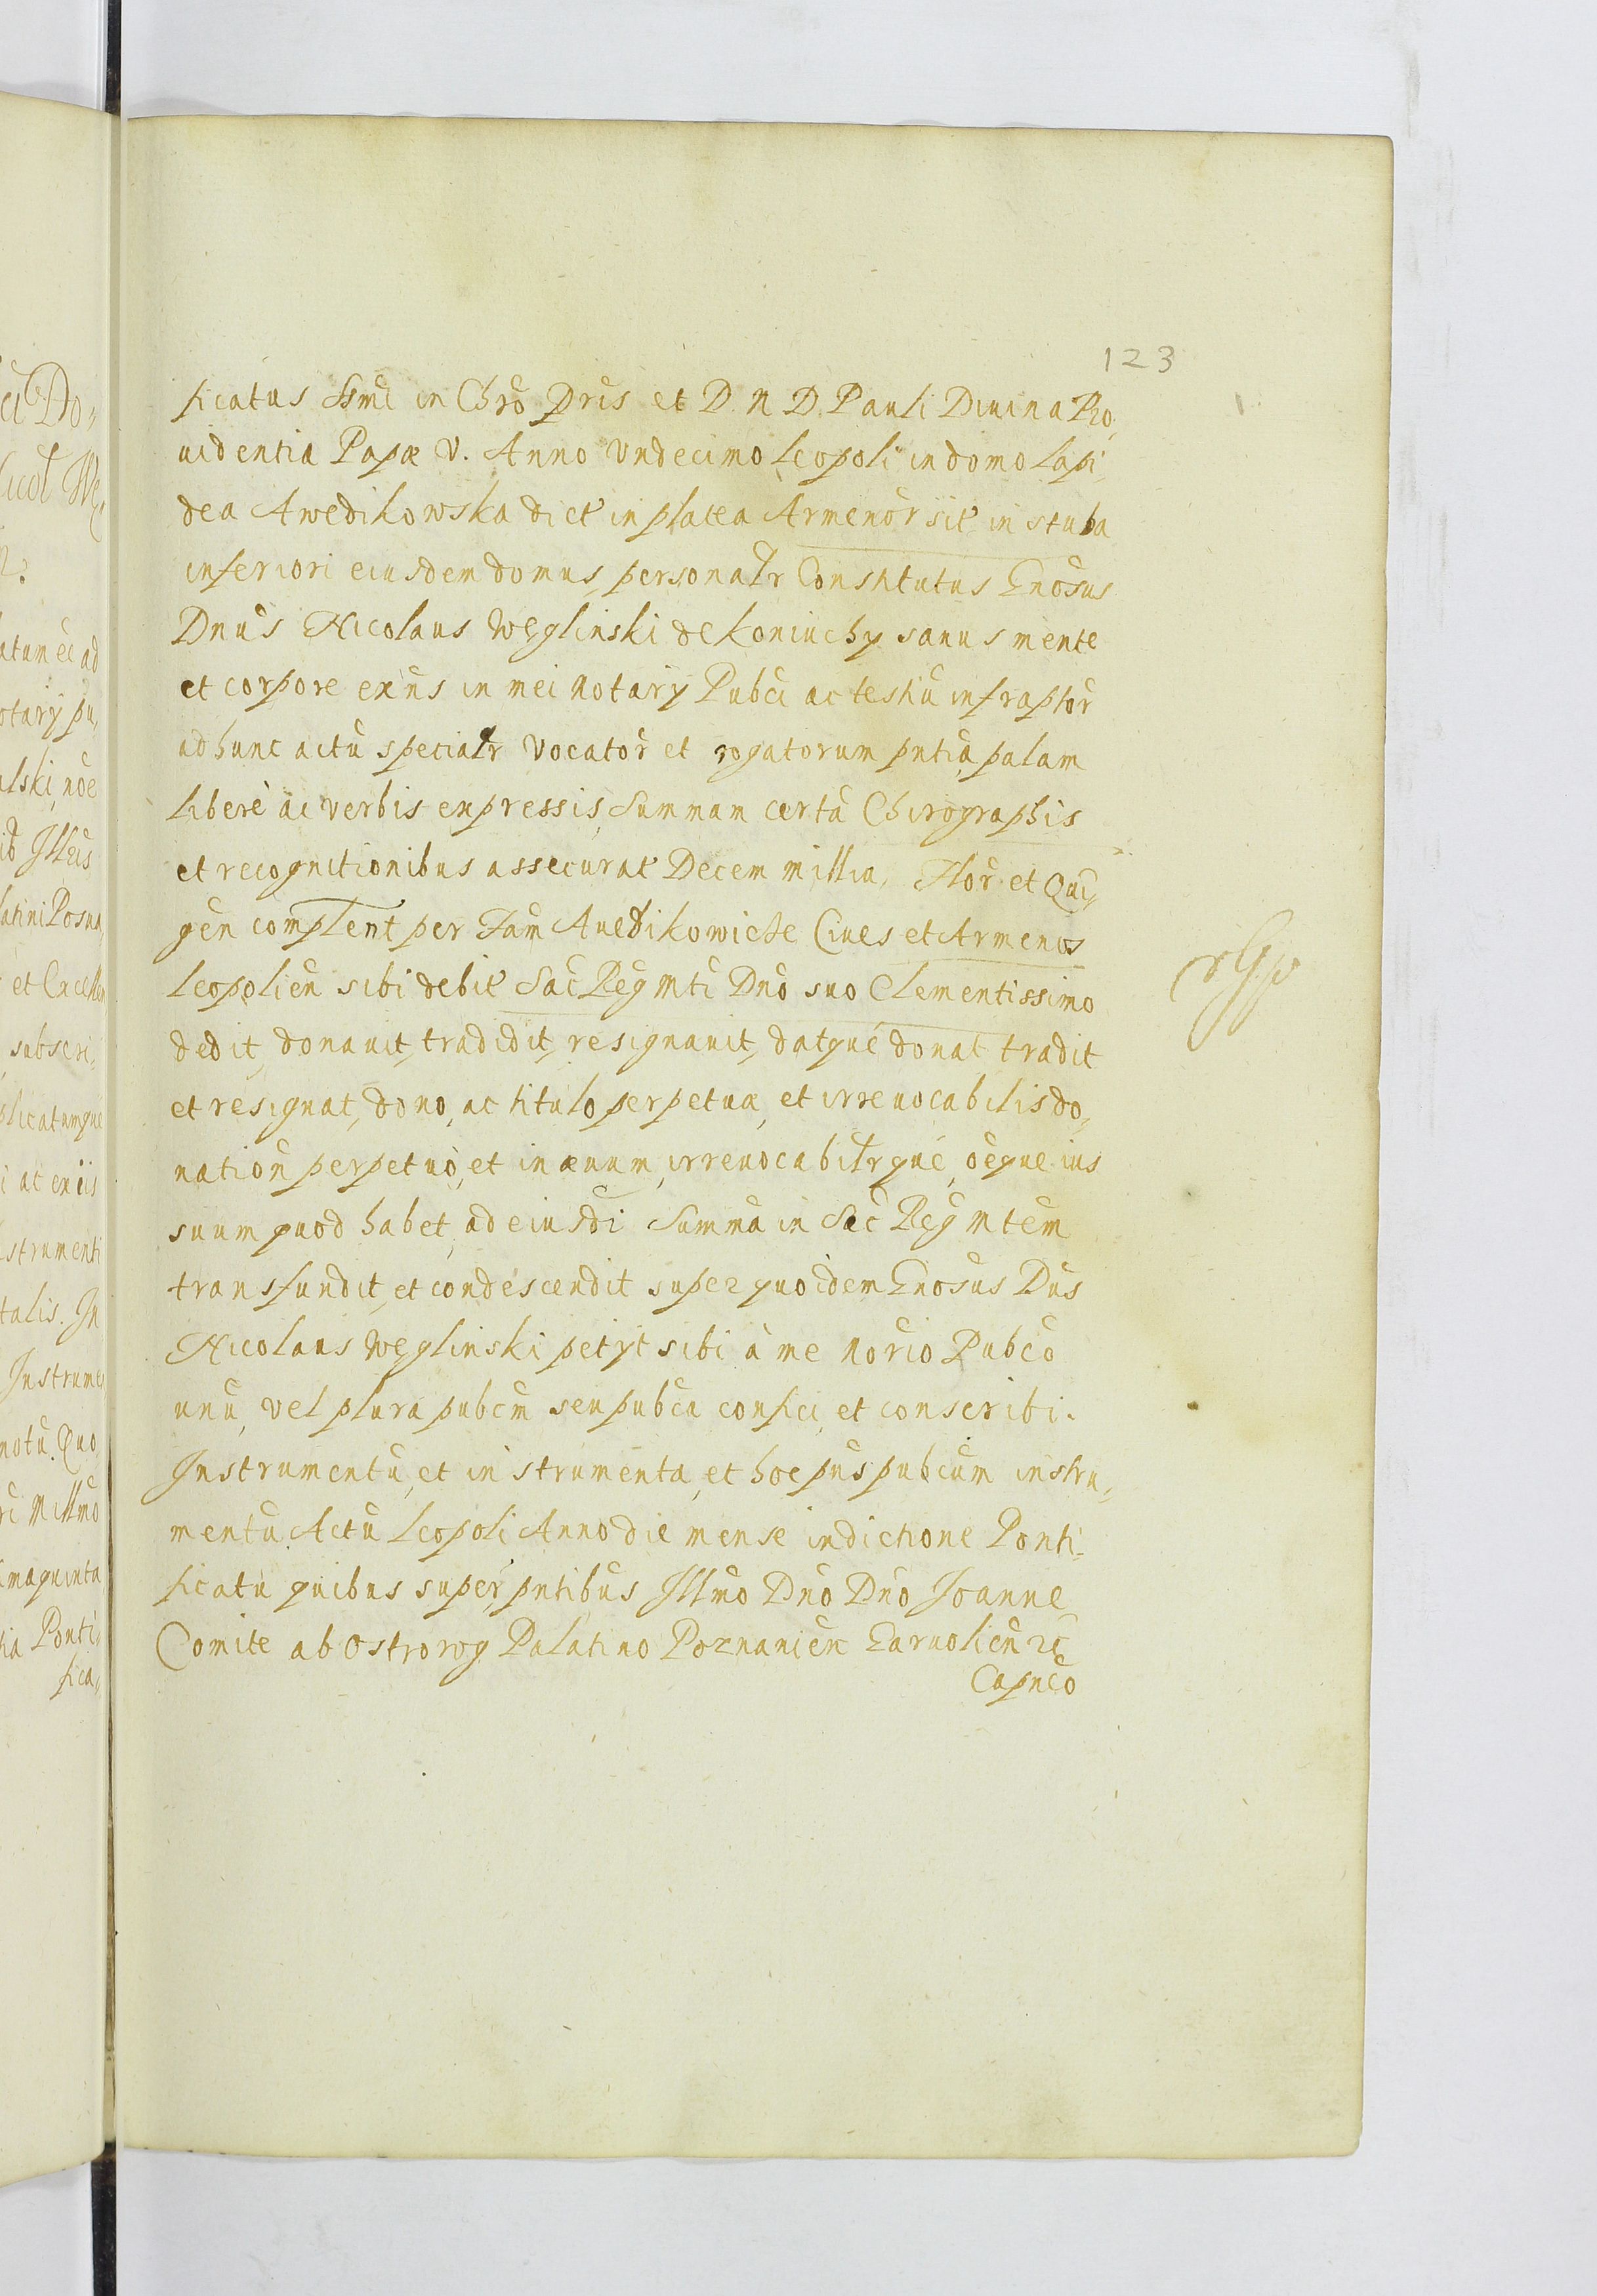 123
ficatus Ssmi in Chro Pris et D. N. D. Pauli Diuina Pro,
uidentia Papæ V. Anno Vndecimo Leopoli in domo Lapi,
dea Awedikowska dict in platea Armenor sit in stuba
inferiori eiusdem domus, personalr Constitutus Gnosus
Dnus Nicolaus Węglinski de Koniuchy sanus mente
et corpore exñs in mei Notarÿ Pubci ac testiũ infraptor
ad hunc actũ specialr Vocator et rogatorum pntia, palam
libere ac verbis expressis, Summam certã Chirographis
et recognitionibus assecurat Decem millia, Flor et Qui,
gen complent per Fam Auedikowicze Ciues et Armenos
Leopolien sibi debit Sac Reg Mti Dño suo Clementissimo
dedit, donauit, tradidit, resignauit, datque donat tradit
et resignat, dono, ac titulo perpetuæ, et irreuocabilis do,
nation perpetuò, et in æuum, irreuocabilrque, oeque ius
suum quod habet, ad eiusdi Summa in Sac Reg Mtem
transfundit, et condescendit super quo idem Gnosus Dñs
Nicolaus Węglinski petÿt sibi à me Norio Pubco
unũ, vel plura pubcm seu pubca confici, et conscribi.
Instrumentũ, et instrumenta, et hoc pñs pubcum instru,
mentũ Actũ Leopoli Anno die mense indictione Ponti,
ficatũ quibus super, pntibus Illmo Dño Dño Joanne
Comite ab Ostrorog Palatino Poznanien Garuolien etc
Capneo